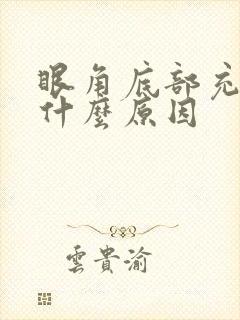 眼角底部充
什麼原因
雲貴渝